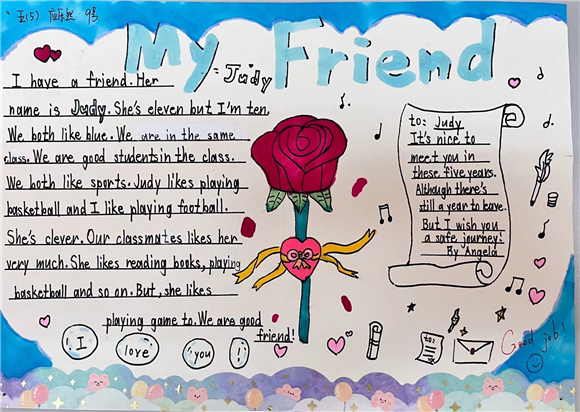 五(5) 应乐悠 9号
My Friend
-Judy
I have a friend. Her
name is Judy. She's eleven but I'm ten.
We both like blue. We are in the same
class. We are good students in the class.
We both like sports. Judy likes playing
basketball and I like playing football.
She's clever. Our classmates likes her
very much. She likes reading books, playing
basketball and so on. But, she likes
playing game to. We are good
friend!
I love you !
to: Judy
It's nice to
meet you in
these five years.
Although there's
still a year to leave.
But I wish you
a safe journey!
By Angela
to:
Good job!